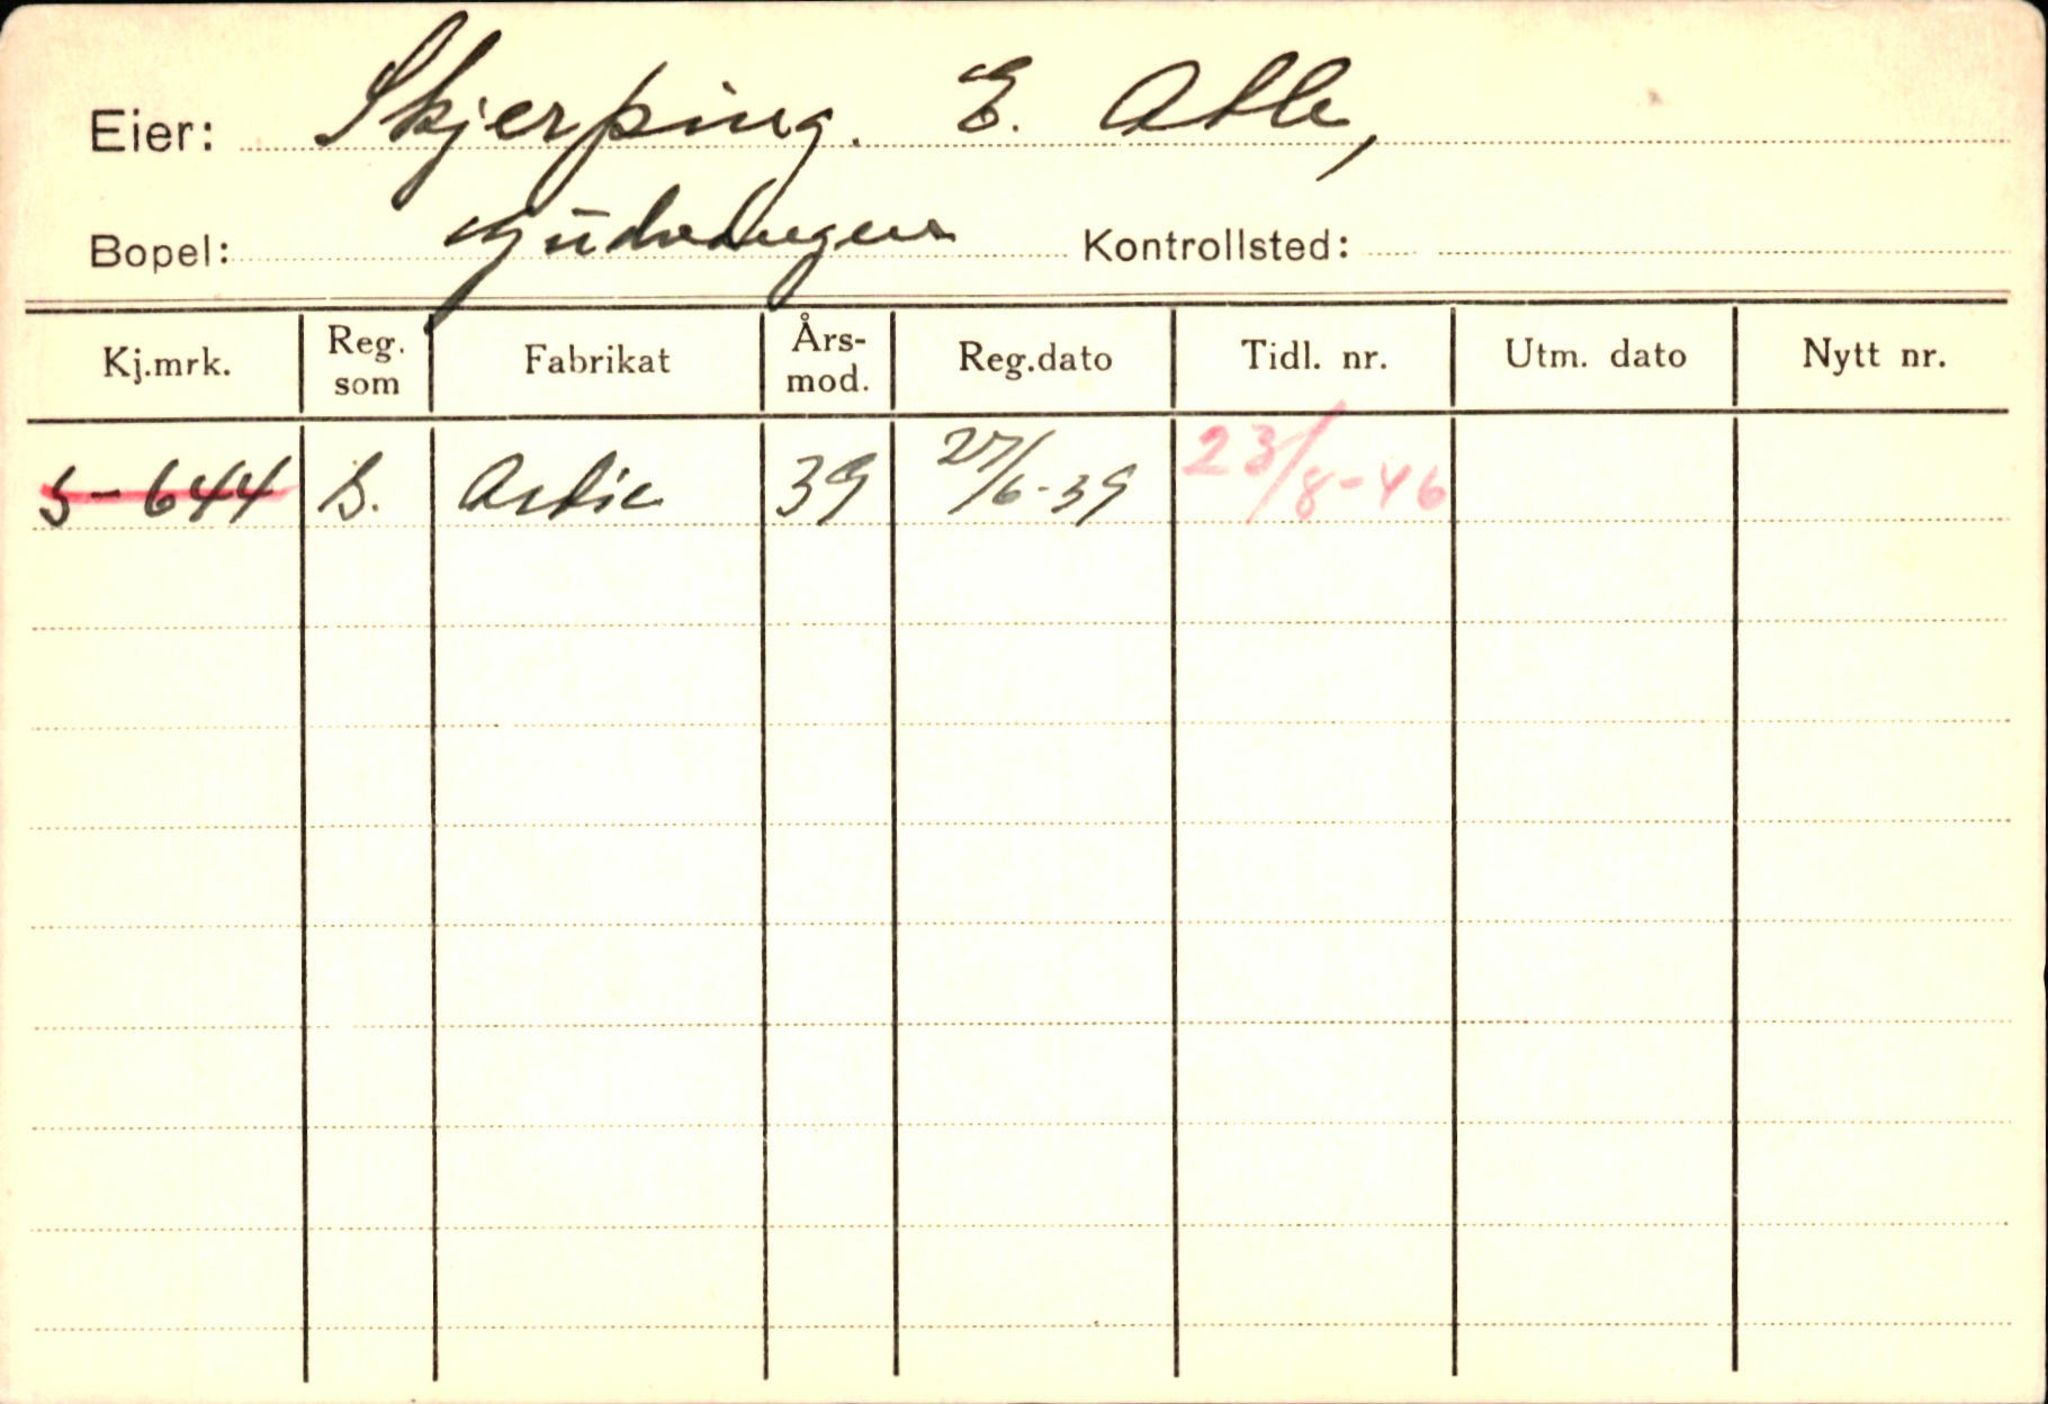 Eier: Skjerping. E. Atle,
Bopel: Gudvangen Kontrollsted:
Kj.mrk. Reg. som Fabrikat Års-mod. Reg.dato Tidl. nr. Utm. dato Nytt nr.
S-644 S. Ardie 39 27/6-39 23/8-46